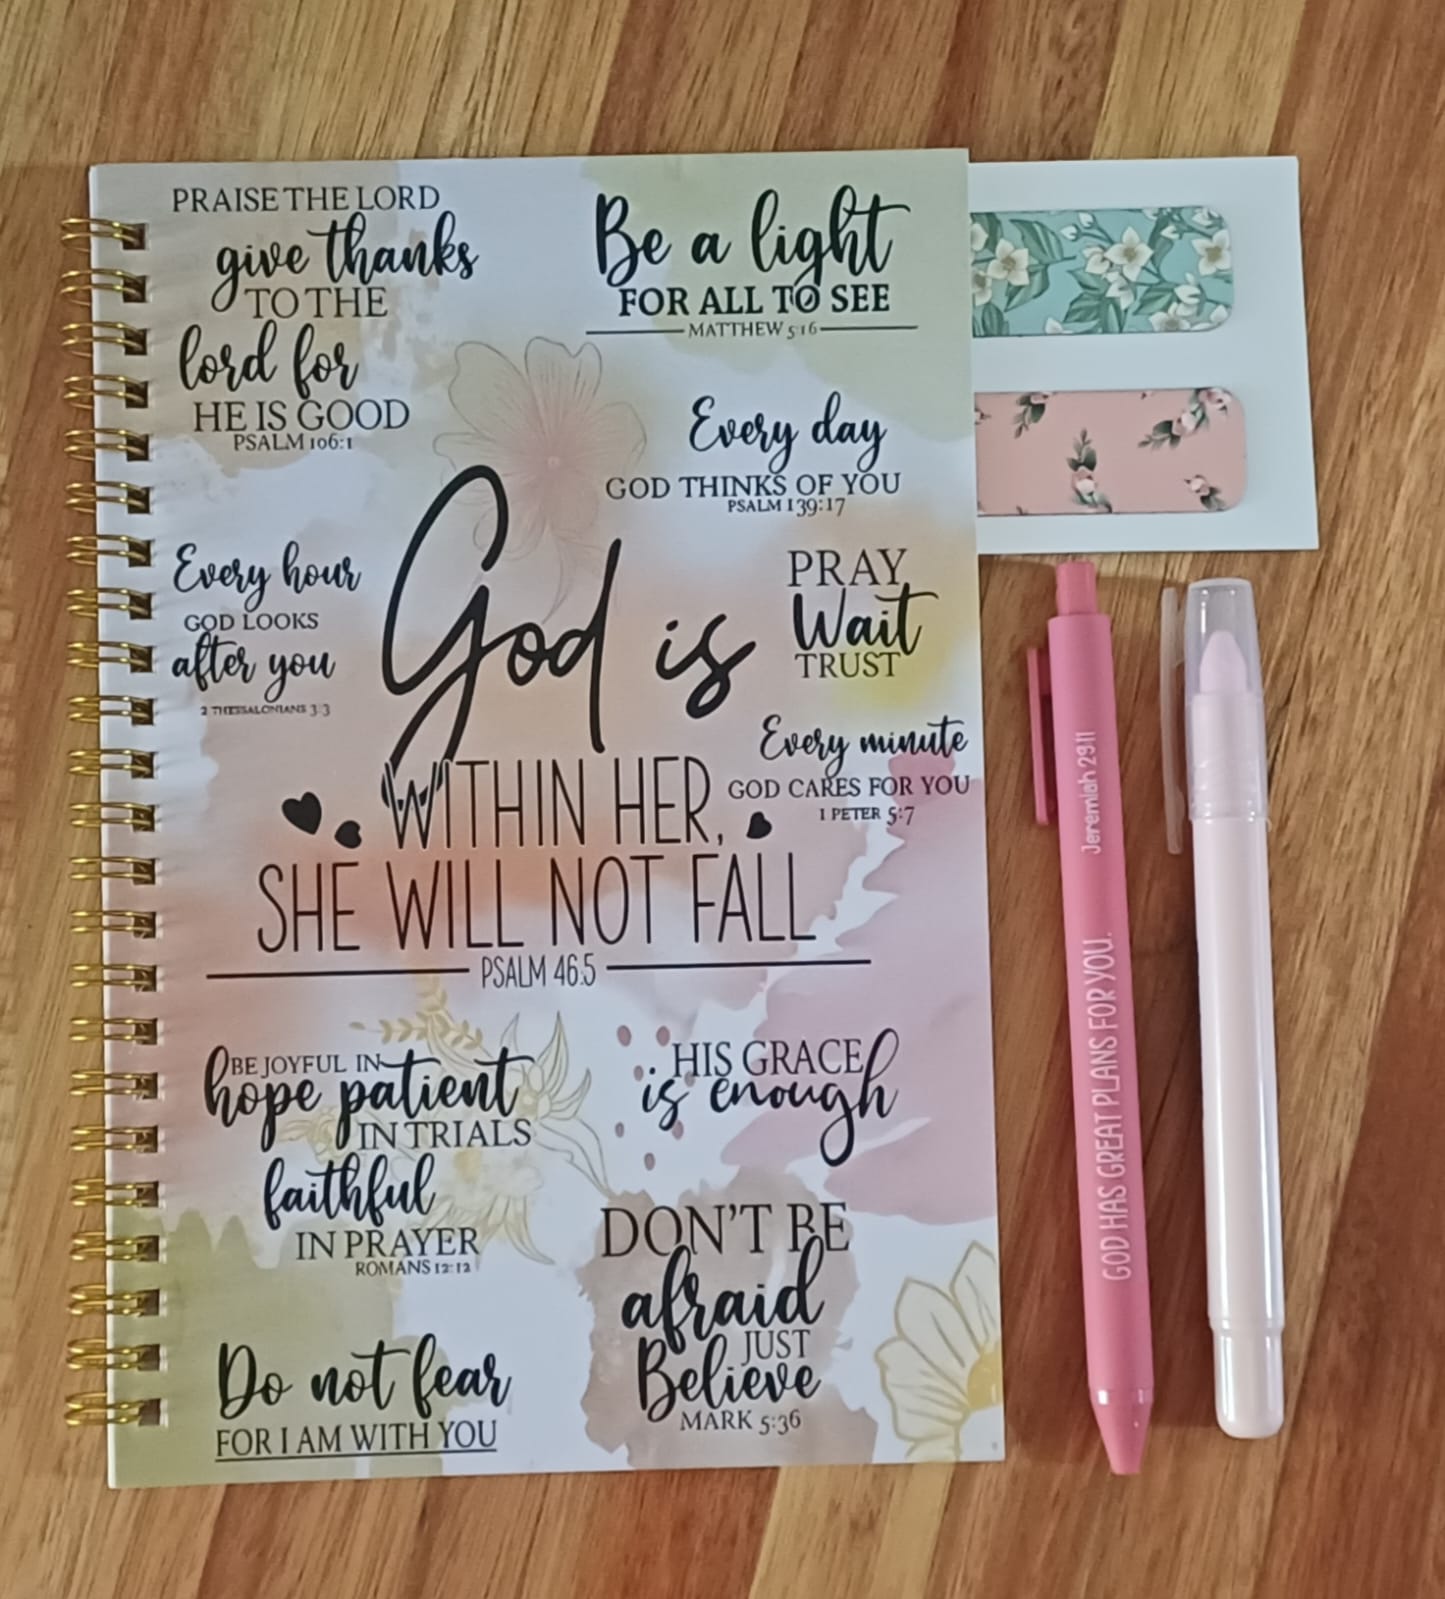 PRAISE THE LORD
give thanks
TO THE
lord for
HE IS GOOD
PSALM 106:1
Be a light
FOR ALL TO SEE
MATTHEW 5:16
Every day
GOD THINKS OF YOU
PSALM 139:17
Every hour
GOD LOOKS
after you
2 THESSALONIANS 3:3
PRAY
Wait
TRUST
God is
WITHIN HER,
SHE WILL NOT FALL
PSALM 46:5
Every minute
GOD CARES FOR YOU
1 PETER 5:7
BE JOYFUL IN
hope patient
IN TRIALS
faithful
IN PRAYER
ROMANS 12:12
HIS GRACE
is enough
DON'T BE
afraid
JUST
Believe
MARK 5:36
Do not fear
FOR I AM WITH YOU
GOD HAS GREAT PLANS FOR YOU.
Jeremiah 29:11